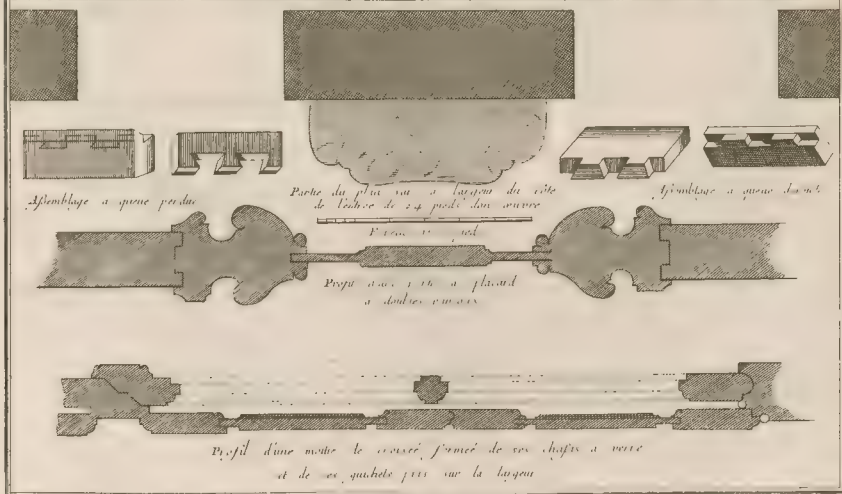 Assemblage a queue perdue
Partie du plan largeur du côté
de pieds dans œuvre
Assemblage a queue
pied
Profil a placard
a doubles
Profil d'une moitié de croisée formée de ses chassis a verre
et de ses guichets pris sur la largeur